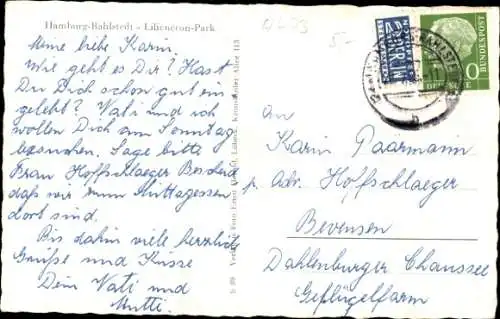 Hamburg-Rahlstedt - Liliencron-Park
4-23
5,-
Meine liebe Karin.
Wie geht es Dir? Hast
Du Dich schon gut ein
gelebt? Vati und ich
wollen Dich am Sonntag
besuchen. Sage bitte
Frau Hoffschlaeger Bescheid
daß wir zum Mittagessen
dort sind.
Bis dahin viele herzlich
Grüße und Küsse
Dein Vati und
Mutti.
b 89 Verlag Foto Ernst Allee 113
NOTOPFER
2 BERLIN
STEUERMARKE
DEUTSCHE
BUNDESPOST
10
b
An
Karin Paarmann
p. Adr. Hoffschlaeger
Bevensen
Dahlenburger Chaussee
Geflügelfarm